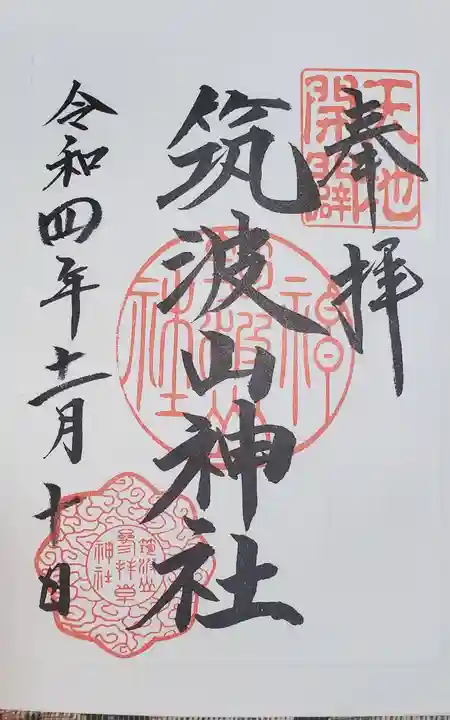 奉拝
天地開闢
筑波山神社
筑波山神社
令和四年十一月十日
筑波山
参拝章
神社